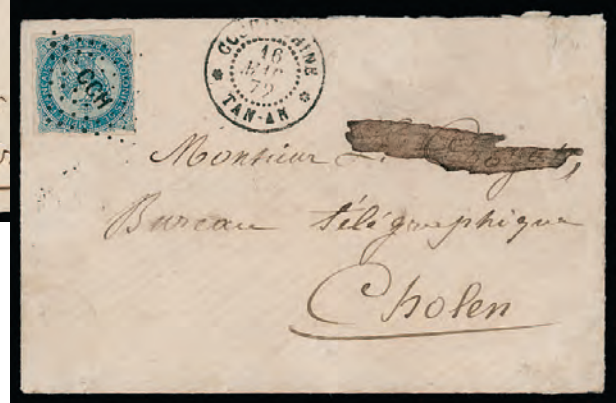 CCH
COCHINCHINE
16
72
TAN-AN
Monsieur
Bureau télégraphique
Cholen